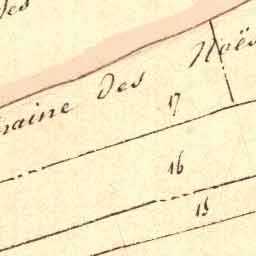 des
raine Des Noës
17
16
15